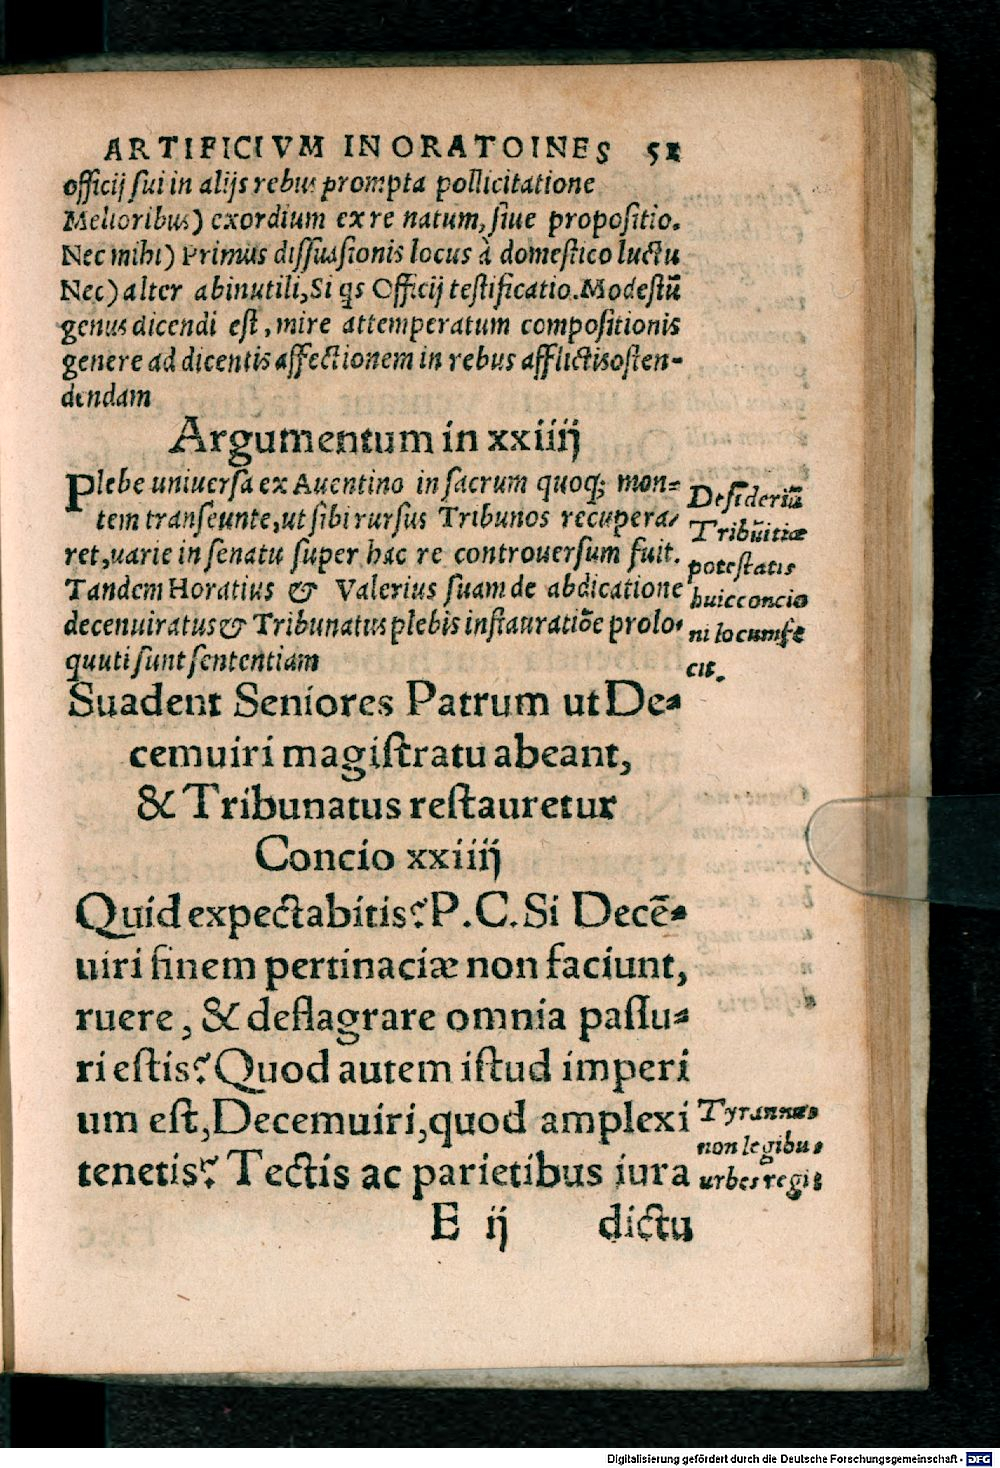 ARTIFICIVM IN ORATOINES 51
officij sui in alijs rebus prompta pollicitatione
Melioribus) exordium ex re natum, siue propositio.
Nec mihi) Primus dissuasionis locus à domestico luctu
Nec) alter ab inutili, Si qs Officij testificatio. Modestũ
genus dicendi est, mire attemperatum compositionis
genere ad dicentis affectionem in rebus afflictis osten-
dendam
Argumentum in xxiiij
Plebe uniuersa ex Auentino in sacrum quoq; mon-
tem transeunte, ut sibi rursus Tribunos recupera-
ret, uarie in senatu super hac re controuersum fuit.
Tandem Horatius & Valerius suam de abdicatione
decenuiratus & Tribunatus plebis instauratiõe prolo-
quuti sunt sententiam
Desideriũ
Tribũitiæ
potestatis
huic concio
ni locum fe
cit.
Suadent Seniores Patrum ut De-
cemuiri magistratu abeant,
& Tribunatus restauretur
Concio xxiiij
Quid expectabitis? P. C. Si Decẽ-
uiri finem pertinaciæ non faciunt,
ruere, & deflagrare omnia passu-
ri estis? Quod autem istud imperi
um est, Decemuiri, quod amplexi
tenetis? Tectis ac parietibus iura
Tyrannus
non legibus
urbes regit
E ij dictu
Digitalisierung gefördert durch die Deutsche Forschungsgemeinschaft - DFG